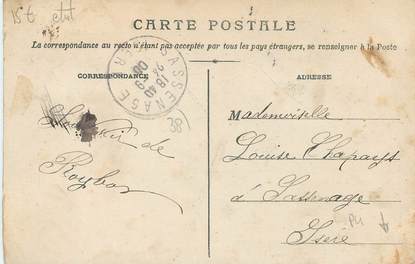 15 t
CARTE POSTALE
La correspondance au recto n'étant pas acceptée par tous les pays étrangers, se renseigner à la Poste
CORRESPONDANCE
ADRESSE
SASSENAGE
ISÈRE
18 40
38
Souvenir de
Roybon
Mademoiselle
Louise Chapays
à Sassenage
Isère